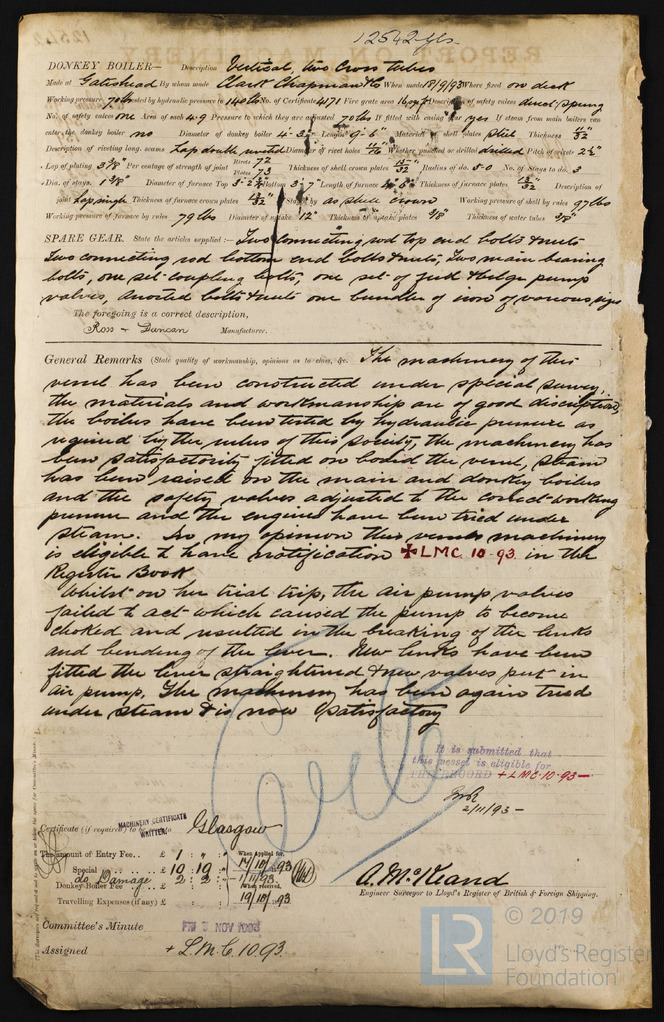 12542 Gls
DONKEY BOILER— Description Vertical, two cross tubes
Made at Gateshead By whom made Clark Chapman & Co When made 18/9/93 Where fixed on deck
Working pressure 70lbs tested by hydraulic pressure to 140lbs No. of Certificate 4171 Fire grate area 16 sq ft Description of safety valves direct spring
No. of safety valves one Area of each 4.9 Pressure to which they are adjusted 70lbs If fitted with easing gear yes If steam from main boilers can
enter the donkey boiler no Diameter of donkey boiler 4'3" Length 9'6" Material of shell plates Steel Thickness
Description of riveting long. seams Lap double riveted Diameter of rivet holes Whether punched or drilled drilled Pitch of rivets 2½"
Lap of plating 3⅞" Per centage of strength of joint Rivets 72 Plates 73 Thickness of shell crown plates 15/32" Radius of do. 5.0 No. of Stays to do. 3
Dia. of stays. 1⅞" Diameter of furnace Top Bottom 3'7" Length of furnace Thickness of furnace plates 13/32" Description of
joint Lap single Thickness of furnace crown plates Stayed by as shell crown Working pressure of shell by rules 97 lbs
Working pressure of furnace by rules 79 lbs Diameter of uptake 12" Thickness of uptake plates ⅜" Thickness of water tubes ⅜"
SPARE GEAR. State the articles supplied:— Two connecting rod top end bolts & nuts
Two connecting rod bottom end bolts & nuts, Two main bearing
bolts, one set coupling bolts, one set of feed & bilge pump
valves, assorted bolts & nuts one bundle of iron of various sizes
The foregoing is a correct description,
Ross & Duncan Manufacturer.
General Remarks (State quality of workmanship, opinions as to class, &c. The machinery of this
vessel has been constructed under special survey,
the materials and workmanship are of good discription,
the boilers have been tested by hydraulic pressure as
required by the rules of this society, the machinery has
been satisfactorily fitted on board the vessel, steam
has been raised on the main and donkey boilers
and the safety valves adjusted to the correct working
pressure and the engines have been tried under
steam. In my opinion this vessels machinery
is eligible to have notification ✠LMC 10.93 in the
Register Book
Whilst on her trial trip, the air pump valves
failed to act which caused the pump to become
choked and resulted in the breaking of the links
and bending of the lever. New links have been
fitted the lever straightened & new valves put in
air pump, The machinery has been again tried
under steam & is now satisfactory
It is submitted that
this vessel is eligible for
THE RECORD + LMC 10.93
2/11/93
MACHINERY CERTIFICATE
WRITTEN
Certificate (if required) to be sent to Glasgow
The amount of Entry Fee.. £ 1 : " : " When applied for,
Special .. £ 10 : 19 : " 17/10/93
do Damage £ 2 : 2 : " 1/11/93
Donkey Boiler Fee £ : : When received,
Travelling Expenses (if any) £ : : 19/10/93
A. McKeand
Engineer Surveyor to Lloyd's Register of British & Foreign Shipping.
Committee's Minute FRI 3 NOV 1893
Assigned + L.M.C. 10.93
© 2019
LR
Lloyd's Register
Foundation